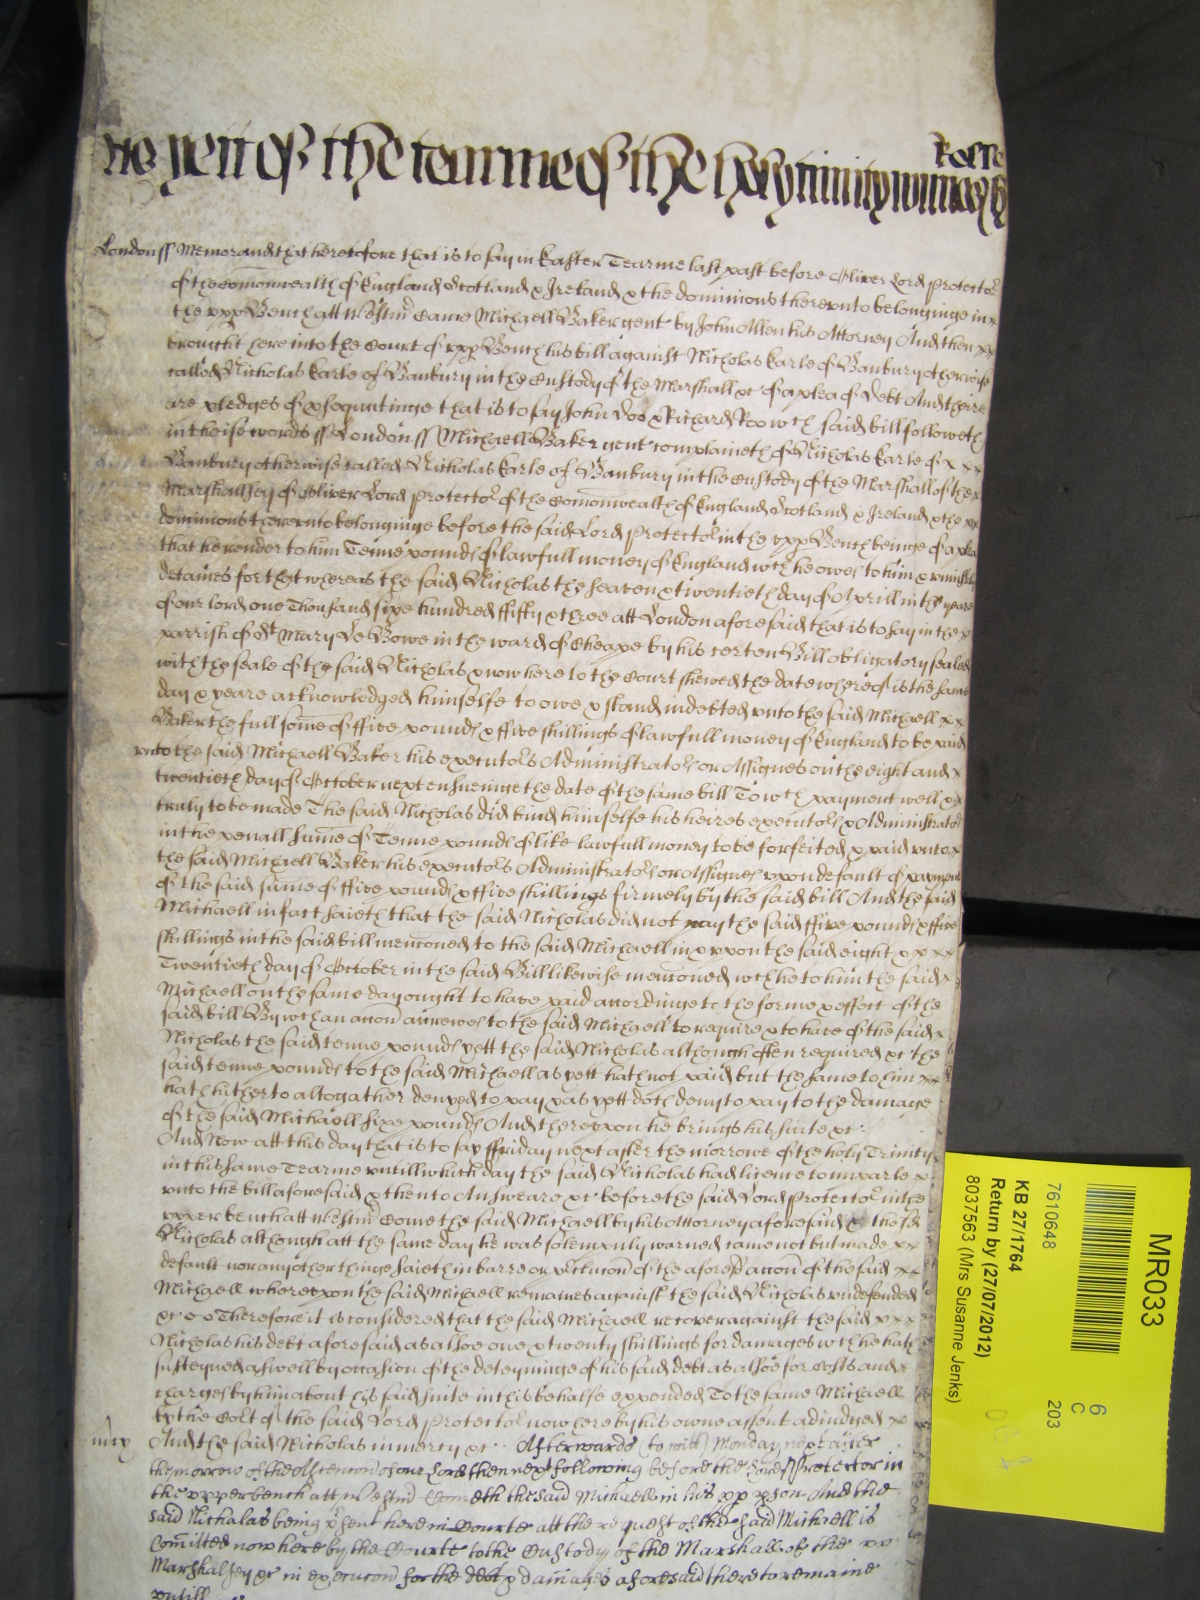 yett of the tearme of the holy trinity wittnes
Rolle
London ss Memorand that heretofore that is to say in Easter Tearme last past before Oliver Lord Protector
of the Comonwealth of England Scotland & Ireland & the dominions thereunto belonginge in x
the upp Bench att Westm Came Michaell Baker gent by John Allen his Attorney And then xx
brought here into the Court of upp Bench his bill against Nicholas Earle of Banbury otherwise
called Nicholas Earle of Banbury in the Custody of the Marshall &c of a plea of Debt And there
are pledges of psequutinge that is to say John Doo & Richard Roo wch said bill followeth
in theise words ss London ss Michaell Baker gent complaineth of Nicholas Earle of x x x
Banbury otherwise called Nicholas Earle of Banbury in the Custody of the Marshall of the x
Marshallsey of Oliver Lord Protector of the Comonwealth of England Scotland & Ireland & the
dominions thereunto belonginge before the said Lord Protector in the upp Bench beinge of a plea
that he render to him Tenne pounds of lawfull money of England wch he owes to him & uniustly
detaines for that whereas the said Nicholas the seaven & twentieth day of Aprill in the yeare
of our lord one Thousand sixe hundred fiffty & three att London aforesaid that is to say in the x
parrish of St Mary Le Bowe in the ward of Cheape by his certen Bill obligatory sealed
with the seale of the said Nicholas & now here to the Court shewed the date whereof is the same
day & yeare acknowledged himselfe to owe & stand indebted unto the said Michaell x x
Baker the full some of ffive pounds & ffive shillings of lawfull money of England to be paid
unto the said Michaell Baker his executors Administrators or Assignes on the eight and x
twentieth day of October next ensueinge the date of the same bill To wch payment well &
truly to be made The said Nicholas did bind himselfe his heires executors & Administrators
in the penall sume of Tenne pounds of like lawfull money to be forfeited & paid unto x
the said Michaell Baker his executors Administrators or Assignes upon default of payment
of the said sume of ffive pounds & ffive shillings firmely by the said bill And the said
Michaell in fact saieth that the said Nicholas did not pay the said ffive pounds & ffive
shillings in the said bill menconed to the said Michaell in & upon the said eight & x x x
Twentieth day of October in the said Bill likewise menconed wch he to him the said x
Michaell on the same day ought to have paid accordinge to the forme & effect of the
said bill By wch an accon accrewes to the said Michaell to require & to have of the said x
Nicholas the said tenne pounds yett the said Nicholas although often required &c the
said tenne pounds to the said Michaell as yett hath not paid but the same to him xx
hath hitherto altogather denyed to pay & as yett doth deny to pay to the damage
of the said Michaell sixe pounds And thereupon he brings his suite &c
And Now att this day that is to say ffriday next after the morrowe of the holy Trinity
in this same Tearme untill which day the said Nicholas had licence to imparle x
unto the bill aforesaid & then to Answeare &c before the said Lord Protector in the
upper bench att Westm Come the said Michaell by his Attorney aforesaid & the sd
Nicholas although att the same day he was solempnly warned came not but made xx
default nor any other thinge saieth in barre or pclusion of the aforesd accon of the said xx
Michaell whereupon the said Michaell remaines against the said Nicholas undefended
&c Therefore it is considered that the said Michaell recover against the said x x x
Nicholas his debt aforesaid as alsoe one & twenty shillings for damages wch he hath
susteyned aswell by occasion of the deteyninge of his said debt as alsoe for costs and x
charges by him about his said suite in this behalfe expended To the same Michaell
by the Cort of the said Lord Protector now here by his owne assent adiudged x
mcy And the said Nicholas in mercy &c Afterwards (to witt) Monday next after
the morrow of the Ascencon of our Lord then next following before the Lord Protector in
the upper bench att Westm Cometh the said Michaell in his pp pson And the
said Nicholas being psent here in Courte att the request of the said Michaell is
Comitted now here by the Courte to the Custody of the Marshall of the xx
Marshalsey &c in execucon for the debt & damages aforesaid there to remaine
untill
MR033
6
C
203
7610648
KB 27/1764
Return by (27/07/2012)
8037563 (Mrs Susanne Jenks)